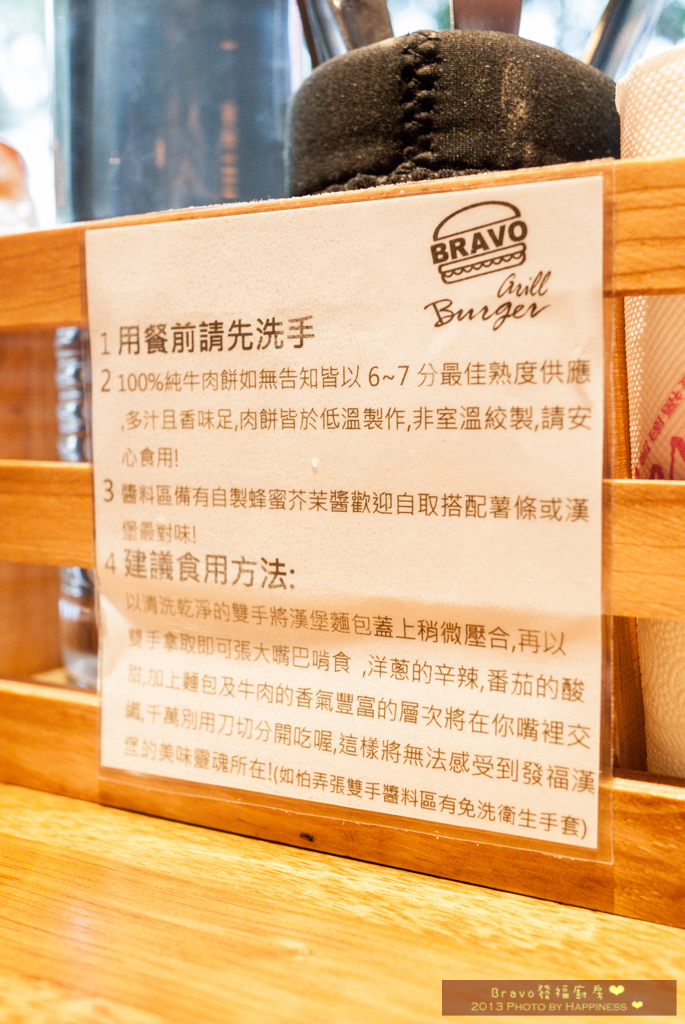 BRAVO
Grill
Burger
1 用餐前請先洗手
2 100%純牛肉餅如無告知皆以 6~7 分最佳熟度供應
,多汁且香味足,肉餅皆於低溫製作,非室溫絞製,請安
心食用!
3 醬料區備有自製蜂蜜芥茉醬歡迎自取搭配薯條或漢
堡最對味!
4 建議食用方法:
以清洗乾淨的雙手將漢堡麵包蓋上稍微壓合,再以
雙手拿取即可張大嘴巴啃食 ,洋蔥的辛辣,番茄的酸
甜,加上麵包及牛肉的香氣豐富的層次將在你嘴裡交
織,千萬別用刀切分開吃喔,這樣將無法感受到發福漢
堡的美味靈魂所在!(如怕弄張雙手醬料區有免洗衛生手套)
Bravo發福廚房
2013 PHOTO BY HAPPINESS